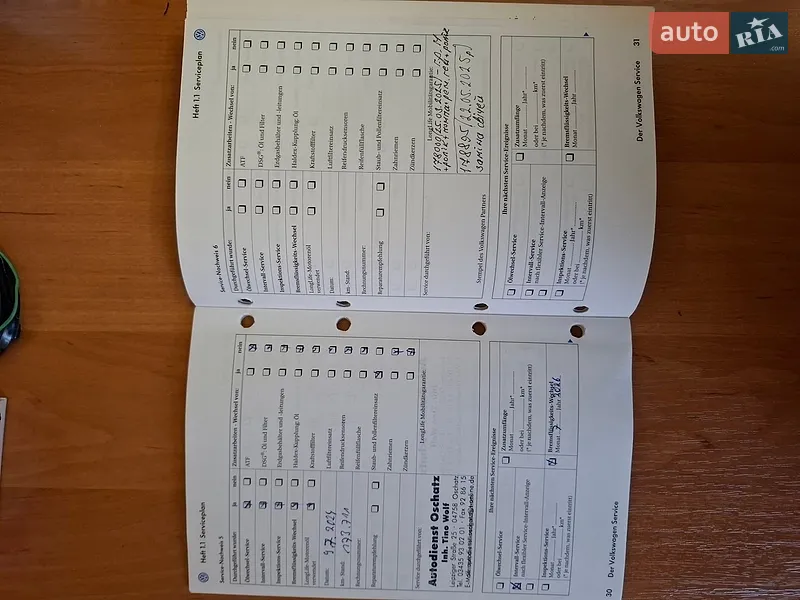 auto
RIA
.com
Heft 1.1 Serviceplan
Service-Nachweis 5
Durchgeführt wurde:
ja
nein
Ölwechsel-Service
Intervall-Service
Inspektions-Service
Bremsflüssigkeits-Wechsel
LongLife-Motorenöl
verwendet
Datum:
km-Stand:
173.711
Rechnungsnummer:
Reparaturempfehlung
Service durchgeführt von:
Autodienst Oschatz
Inh. Tino Wolf
Leipziger Straße 25 - 04758 Oschatz
Tel. 03435 93 02 01 - Fax 92 86 15
Zusatzarbeiten - Wechsel von:
ja
nein
ATF
DSG®: Öl und Filter
Erdgasbehälter und -leitungen
Haldex-Kupplung: Öl
Kraftstofffilter
Luftfiltereinsatz
Reifendrucksensoren
Reifenfüllflasche
Staub- und Pollenfiltereinsatz
Zahnriemen
Zündkerzen
LongLife Mobilitätsgarantie:
Ihre nächsten Service-Ereignisse
Ölwechsel-Service
Intervall-Service
nach flexibler Service-Intervall-Anzeige
Inspektions-Service
Monat Jahr*
oder bei km*
(* je nachdem, was zuerst eintritt)
Zusatzumfänge
Monat Jahr*
oder bei km*
(* je nachdem, was zuerst eintritt)
Bremsflüssigkeits-Wechsel
Monat 7 Jahr 2026
30
Der Volkswagen Service
Heft 1.1 Serviceplan
Service-Nachweis 6
Durchgeführt wurde:
ja
nein
Ölwechsel-Service
Intervall-Service
Inspektions-Service
Bremsflüssigkeits-Wechsel
LongLife-Motorenöl
verwendet
Datum:
km-Stand:
Rechnungsnummer:
Reparaturempfehlung
Service durchgeführt von:
Stempel des Volkswagen Partners
Zusatzarbeiten - Wechsel von:
ja
nein
ATF
DSG®: Öl und Filter
Erdgasbehälter und -leitungen
Haldex-Kupplung: Öl
Kraftstofffilter
Luftfiltereinsatz
Reifendrucksensoren
Reifenfüllflasche
Staub- und Pollenfiltereinsatz
Zahnriemen
Zündkerzen
LongLife Mobilitätsgarantie:
178805/22.05.2025р/
заміна свічей
Ihre nächsten Service-Ereignisse
Ölwechsel-Service
Intervall-Service
nach flexibler Service-Intervall-Anzeige
Inspektions-Service
Monat Jahr*
oder bei km*
(* je nachdem, was zuerst eintritt)
Zusatzumfänge
Monat Jahr*
oder bei km*
(* je nachdem, was zuerst eintritt)
Bremsflüssigkeits-Wechsel
Monat Jahr
Der Volkswagen Service
31